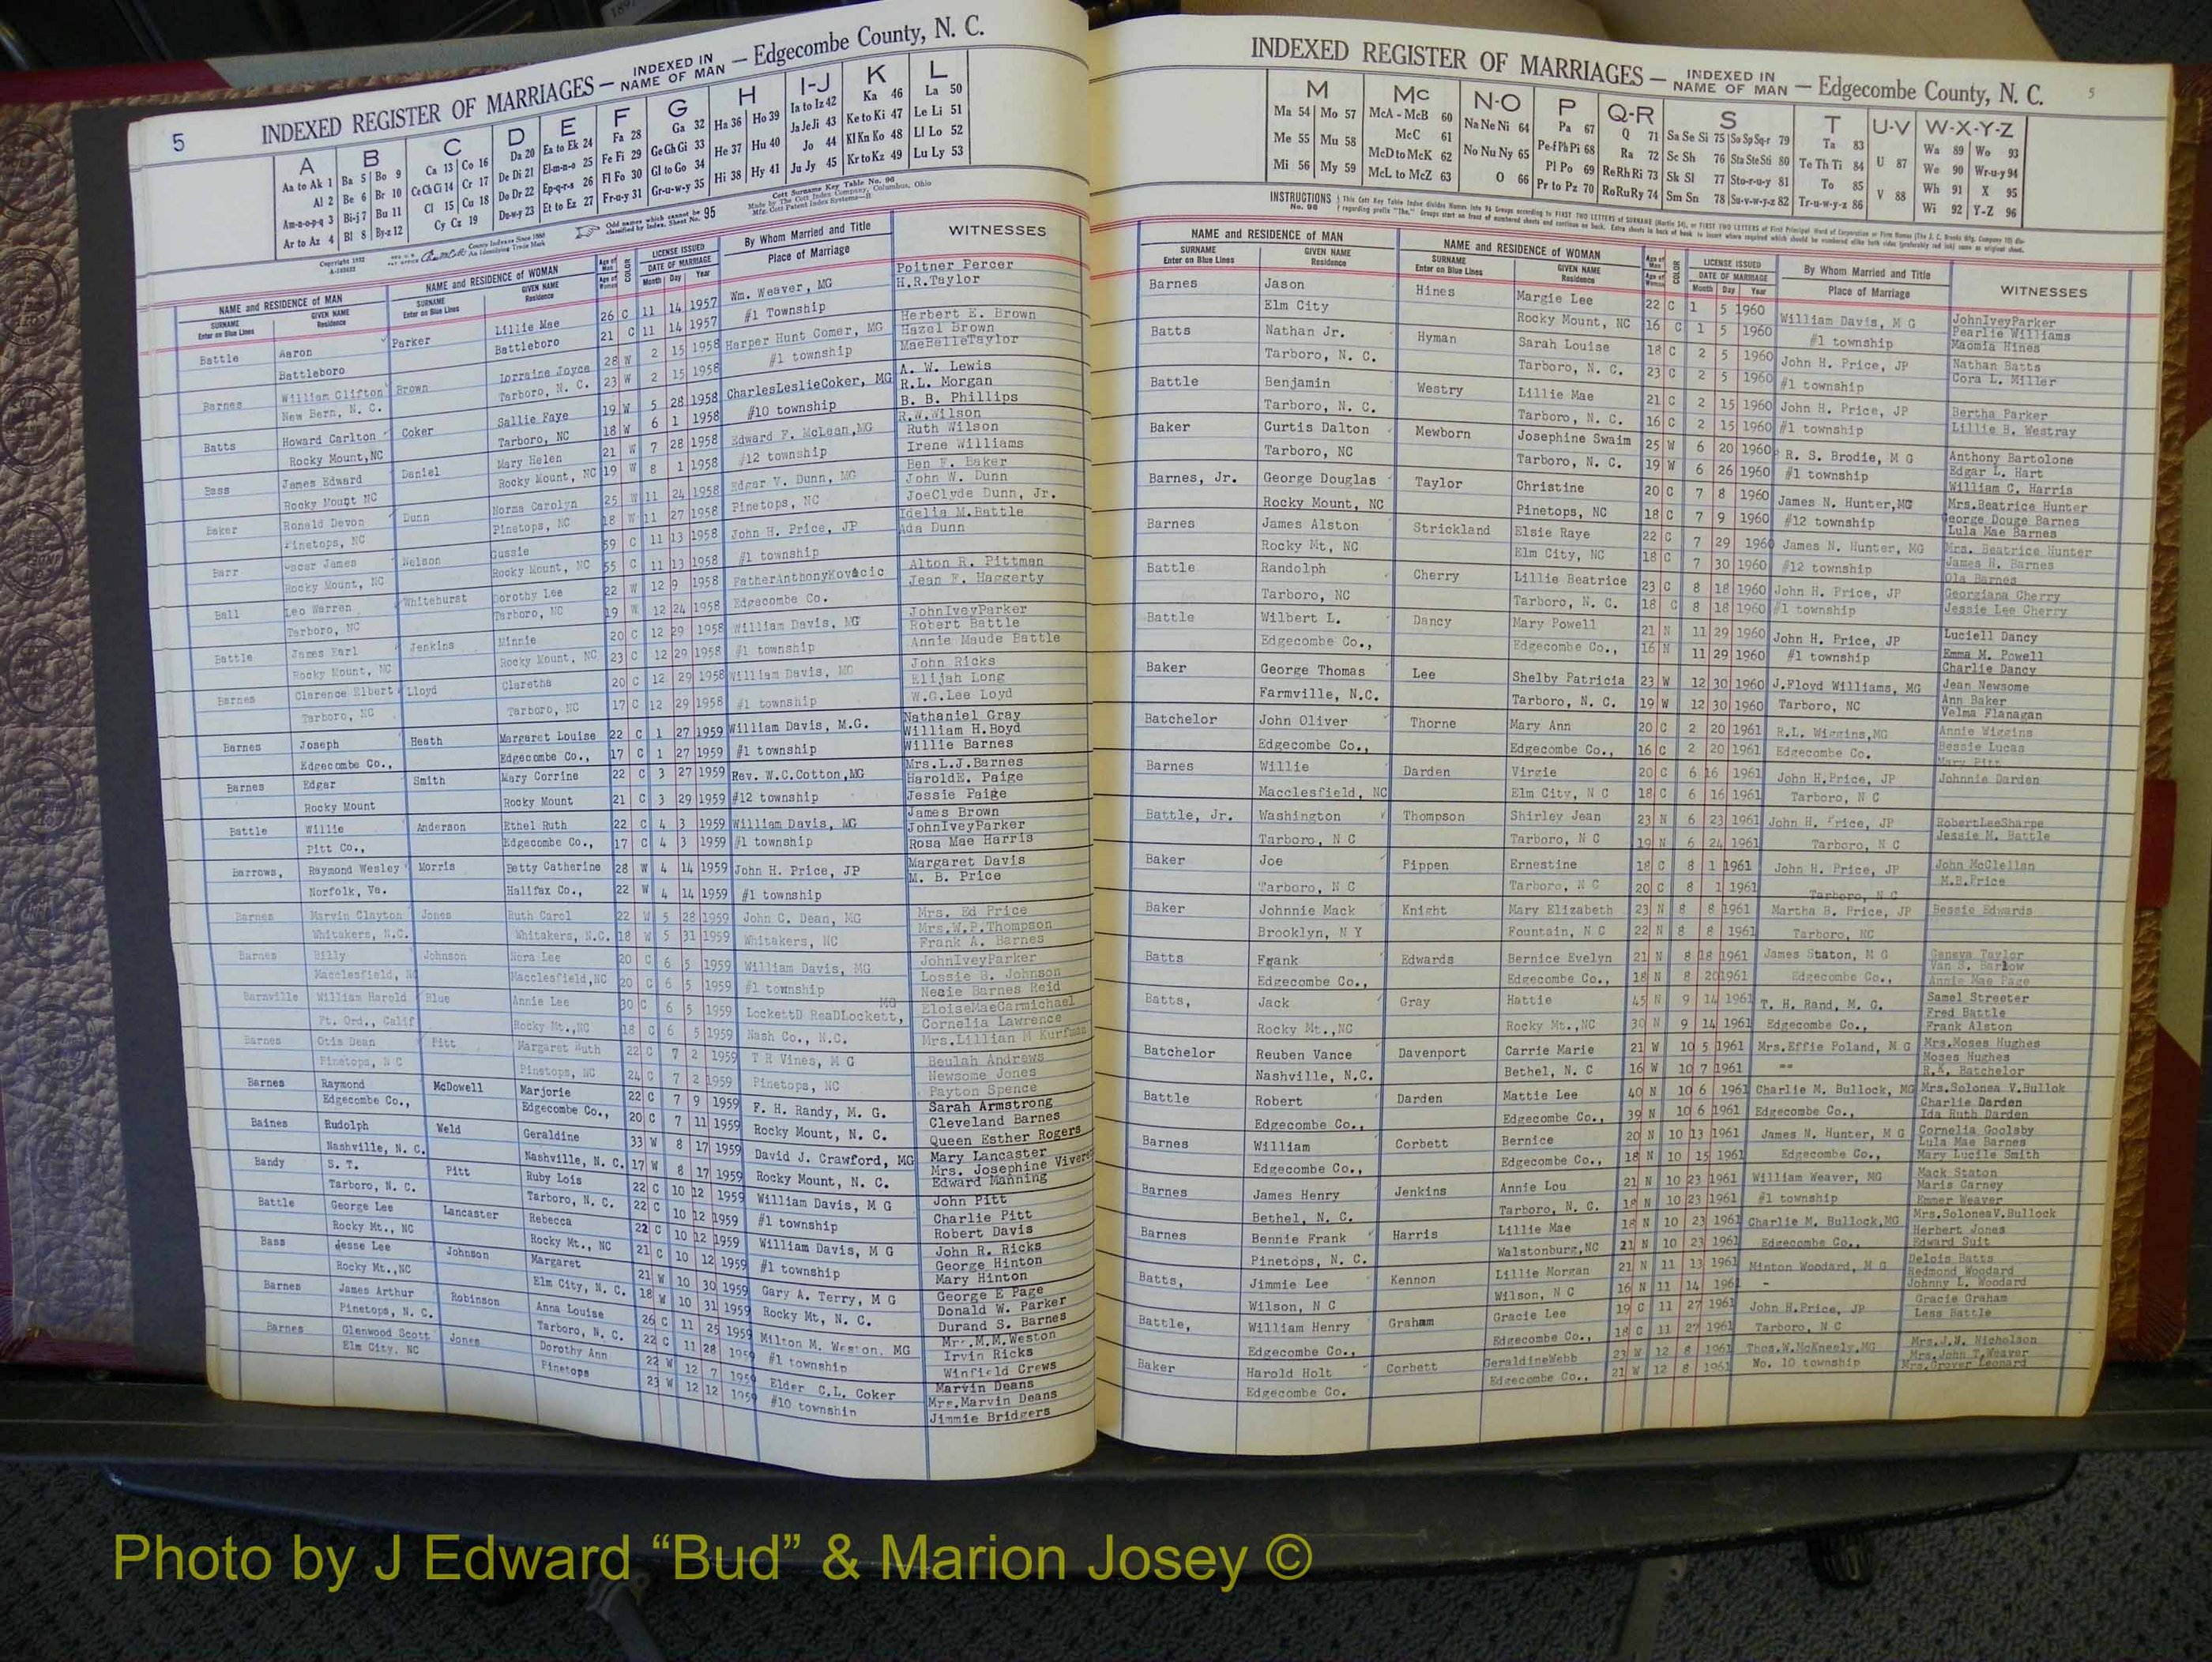 5
INDEXED REGISTER OF MARRIAGES — INDEXED IN NAME OF MAN — Edgecombe County, N. C.
A B C D E F G H I-J K L
Aa to Ak 1 Ba 5 Bo 9 Ca 13 Co 16 Da 20 Ea to Ek 24 Fa 28 Ga 32 Ha 36 Ho 39 Ia to Iz 42 Ka 46 La 50
Al 2 Be 6 Br 10 Ce Ch Ci 14 Cr 17 De Di 21 El-m-n-o 25 Fe Fi 29 Ge Gh Gi 33 He 37 Hu 40 Ja Je Ji 43 Ke to Ki 47 Le Li 51
Am-n-o-p-q 3 Bi-j 7 Bu 11 Cl 15 Cu 18 Do Dr 22 Ep-q-r-s 26 Fl Fo 30 Gl to Go 34 Hi 38 Hy 41 Jo 44 Kl Kn Ko 48 Ll Lo 52
Ar to Az 4 Bl 8 By-z 12 Cy Cz 19 Du-w-y 23 Et to Ez 27 Fr-u-y 31 Gr-u-w-y 35 Ju Jy 45 Kr to Kz 49 Lu Ly 53
Odd names which cannot be classified by Index, Sheet No. 95
Cott Surname Key Table No. 96
Made by The Cott Index Company, Columbus, Ohio
NAME and RESIDENCE of MAN NAME and RESIDENCE of WOMAN COLOR LICENSE ISSUED By Whom Married and Title WITNESSES
SURNAME Enter on Blue Lines GIVEN NAME Residence SURNAME Enter on Blue Lines GIVEN NAME Residence DATE OF MARRIAGE Month Day Year Place of Marriage
Battle Aaron Parker Lillie Mae 26 C 11 14 1957 Wm. Weaver, MG Poitner Percer
Battleboro Battleboro 21 C 11 14 1957 #1 Township H.R.Taylor
Barnes William Clifton Brown Lorraine Joyce 28 W 2 15 1958 Harper Hunt Comer, MG Herbert E. Brown
Hazel Brown
New Bern, N. C. Tarboro, N. C. 23 W 2 15 1958 #1 township MaeBelleTaylor
Batts Howard Carlton Coker Sallie Faye 19 W 5 28 1958 CharlesLeslieCoker, MG A. W. Lewis
R.L. Morgan
Rocky Mount,NC Tarboro, NC 18 W 6 1 1958 #10 township B. B. Phillips
Bass James Edward Daniel Mary Helen 21 W 7 28 1958 Edward F. McLean,MG R.W.Wilson
Ruth Wilson
Rocky Mount NC Rocky Mount, NC 19 W 8 1 1958 #12 township Irene Williams
Baker Ronald Devon Dunn Norma Carolyn 25 W 11 24 1958 Edgar V. Dunn, MG Ben F. Baker
John W. Dunn
Pinetops, NC Pinetops, NC 18 W 11 27 1958 Pinetops, NC JoeClyde Dunn, Jr.
Barr Oscar James Nelson Gussie 59 C 11 13 1958 John H. Price, JP Idelia M.Battle
Rocky Mount, NC Rocky Mount, NC 55 C 11 13 1958 #1 township Ada Dunn
Ball Leo Warren Whitehurst Dorothy Lee 22 W 12 9 1958 FatherAnthonyKovacic Alton R. Pittman
Tarboro, NC Tarboro, NC 19 W 12 24 1958 Edgecombe Co. Jean F. Haggerty
Battle James Earl Jenkins Minnie 20 C 12 29 1958 William Davis, MG JohnIveyParker
Robert Battle
Rocky Mount, NC Rocky Mount, NC 23 C 12 29 1958 #1 township Annie Maude Battle
Barnes Clarence Elbert Lloyd Claretha 20 C 12 29 1958 William Davis, MG John Ricks
Elijah Long
Tarboro, NC Tarboro, NC 17 C 12 29 1958 #1 township W.G.Lee Loyd
Barnes Joseph Heath Margaret Louise 22 C 1 27 1959 William Davis, M.G. Nathaniel Gray
William H.Boyd
Edgecombe Co., Edgecombe Co., 17 C 1 27 1959 #1 township Willie Barnes
Barnes Edgar Smith Mary Corrine 22 C 3 27 1959 Rev. W.C.Cotton,MG Mrs.L.J.Barnes
HaroldE. Paige
Rocky Mount Rocky Mount 21 C 3 29 1959 #12 township Jessie Paige
Battle Willie Anderson Ethel Ruth 22 C 4 3 1959 William Davis, MG James Brown
JohnIveyParker
Pitt Co., Edgecombe Co., 17 C 4 3 1959 #1 township Rosa Mae Harris
Barrows, Raymond Wesley Morris Betty Catherine 28 W 4 14 1959 John H. Price, JP Margaret Davis
Norfolk, Va. Halifax Co., 22 W 4 14 1959 #1 township M. B. Price
Barnes Marvin Clayton Jones Ruth Carol 22 W 5 28 1959 John C. Dean, MG Mrs. Ed Price
Mrs.W.P.Thompson
Whitakers, N.C. Whitakers, N.C. 18 W 5 31 1959 Whitakers, NC Frank A. Barnes
Barnes Billy Johnson Nora Lee 20 C 6 5 1959 William Davis, MG JohnIveyParker
Lossie B. Johnson
Macclesfield, NC Macclesfield,NC 20 C 6 5 1959 #1 township Necie Barnes Reid
Barnville William Harold Blue Annie Lee 30 C 6 5 1959 LockettD ReaDLockett, MG EloiseMaeCarmichael
Cornelia Lawrence
Ft. Ord., Calif Rocky Mt.,NC 18 C 6 5 1959 Nash Co., N.C. Mrs.Lillian M Kurfman
Barnes Otis Dean Pitt Margaret Ruth 22 C 7 2 1959 T R Vines, M G Beulah Andrews
Newsome Jones
Pinetops, N C Pinetops, NC 24 C 7 2 1959 Pinetops, NC Payton Spence
Barnes Raymond McDowell Marjorie 22 C 7 9 1959 F. H. Randy, M. G. Sarah Armstrong
Cleveland Barnes
Edgecombe Co., Edgecombe Co., 20 C 7 11 1959 Rocky Mount, N. C. Queen Esther Rogers
Baines Rudolph Weld Geraldine 33 W 8 17 1959 David J. Crawford, MG Mary Lancaster
Mrs. Josephine Vivere
Nashville, N. C. Nashville, N. C. 17 W 8 17 1959 Rocky Mount, N. C. Edward Manning
Bandy S. T. Pitt Ruby Lois 22 C 10 12 1959 William Davis, M G John Pitt
Charlie Pitt
Tarboro, N. C. Tarboro, N. C. 22 C 10 12 1959 #1 township Robert Davis
Battle George Lee Lancaster Rebecca 22 C 10 12 1959 William Davis, M G John R. Ricks
George Hinton
Rocky Mt., NC Rocky Mt., NC 21 C 10 12 1959 #1 township Mary Hinton
Bass Jesse Lee Johnson Margaret 21 W 10 30 1959 Gary A. Terry, M G George E Page
Donald W. Parker
Rocky Mt.,NC Elm City, N. C. 18 W 10 31 1959 Rocky Mt, N. C. Durand S. Barnes
Barnes James Arthur Robinson Anna Louise 26 C 11 25 1959 Milton M. Weston. MG Mrs.M.M.Weston
Irvin Ricks
Pinetops, N. C. Tarboro, N. C. 22 C 11 28 1959 #1 township Winfield Crews
Barnes Glenwood Scott Jones Dorothy Ann 22 W 12 7 1959 Elder C.L. Coker Marvin Deans
Mrs.Marvin Deans
Elm City, NC Pinetops 23 W 12 12 1959 #10 township Jimmie Bridgers
INDEXED REGISTER OF MARRIAGES — INDEXED IN NAME OF MAN — Edgecombe County, N. C. 5
M Mc N-O P Q-R S T U-V W-X-Y-Z
Ma 54 Mo 57 McA - McB 60 Na Ne Ni 64 Pa 67 Q 71 Sa Se Si 75 So Sp Sq-r 79 Ta 83 U 87 Wa 89 Wo 93
Me 55 Mu 58 McC 61 No Nu Ny 65 Pe-f Ph Pi 68 Ra 72 Sc Sh 76 Sta Ste Sti 80 Te Th Ti 84 V 88 We 90 Wr-u-y 94
Mi 56 My 59 McD to McK 62 O 66 Pl Po 69 Re Rh Ri 73 Sk Sl 77 Sto-r-u-y 81 To 85 Wh 91 X 95
McL to McZ 63 Pr to Pz 70 Ro Ru Ry 74 Sm Sn 78 Su-v-w-y-z 82 Tr-u-w-y-z 86 Wi 92 Y-Z 96
INSTRUCTIONS No. 96
NAME and RESIDENCE OF MAN NAME and RESIDENCE OF WOMAN COLOR LICENSE ISSUED By Whom Married and Title WITNESSES
SURNAME Enter on Blue Lines GIVEN NAME Residence SURNAME Enter on Blue Lines GIVEN NAME Residence DATE OF MARRIAGE Month Day Year Place of Marriage
Barnes Jason Hines Margie Lee 22 C 1 5 1960 William Davis, M G JohnIveyParker
Pearlie Williams
Elm City Rocky Mount, NC 16 C 1 5 1960 #1 township Maomia Hines
Batts Nathan Jr. Hyman Sarah Louise 18 C 2 5 1960 John H. Price, JP Nathan Batts
Tarboro, N. C. Tarboro, N. C. 23 C 2 5 1960 #1 township Cora L. Miller
Battle Benjamin Westry Lillie Mae 21 C 2 15 1960 John H. Price, JP Bertha Parker
Tarboro, N. C. Tarboro, N. C. 16 C 2 15 1960 #1 township Lillie B. Westray
Baker Curtis Dalton Mewborn Josephine Swaim 25 W 6 20 1960 R. S. Brodie, M G Anthony Bartolone
Edgar L. Hart
Tarboro, NC Tarboro, N. C. 19 W 6 26 1960 #1 township William C. Harris
Barnes, Jr. George Douglas Taylor Christine 20 C 7 8 1960 James N. Hunter,MG Mrs.Beatrice Hunter
George Douge Barnes
Rocky Mount, NC Pinetops, NC 18 C 7 9 1960 #12 township Lula Mae Barnes
Barnes James Alston Strickland Elsie Raye 22 C 7 29 1960 James N. Hunter, MG Mrs. Beatrice Hunter
James H. Barnes
Rocky Mt, NC Elm City, NC 18 C 7 30 1960 #12 township Ola Barnes
Battle Randolph Cherry Lillie Beatrice 23 C 8 18 1960 John H. Price, JP Georgiana Cherry
Tarboro, NC Tarboro, N. C. 18 C 8 18 1960 #1 township Jessie Lee Cherry
Battle Wilbert L. Dancy Mary Powell 21 N 11 29 1960 John H. Price, JP Luciell Dancy
Emma M. Powell
Edgecombe Co., Edgecombe Co., 16 N 11 29 1960 #1 township Charlie Dancy
Baker George Thomas Lee Shelby Patricia 23 W 12 30 1960 J.Floyd Williams, MG Jean Newsome
Ann Baker
Farmville, N.C. Tarboro, N. C. 19 W 12 30 1960 Tarboro, NC Velma Flanagan
Batchelor John Oliver Thorne Mary Ann 20 C 2 20 1961 R.L. Wiggins,MG Annie Wiggins
Bessie Lucas
Edgecombe Co., Edgecombe Co., 16 C 2 20 1961 Edgecombe Co. Mary Pitt
Barnes Willie Darden Virgie 20 C 6 16 1961 John H.Price, JP Johnnie Darden
Macclesfield, NC Elm City, N C 18 C 6 16 1961 Tarboro, N C
Battle, Jr. Washington Thompson Shirley Jean 23 N 6 23 1961 John H. Price, JP RobertLeeSharpe
Tarboro, N C Tarboro, N C 19 N 6 24 1961 Tarboro, N C Jessie M. Battle
Baker Joe Pippen Ernestine 18 C 8 1 1961 John H. Price, JP John McClellan
Tarboro, N C Tarboro, N C 20 C 8 1 1961 Tarboro, N C M.B.Price
Baker Johnnie Mack Knight Mary Elizabeth 23 N 8 8 1961 Martha B. Price, JP Bessie Edwards
Brooklyn, N Y Fountain, N C 22 N 8 8 1961 Tarboro, NC
Batts Frank Edwards Bernice Evelyn 21 N 8 18 1961 James Staton, M G Geneva Taylor
Van S. Barlow
Edgecombe Co., Edgecombe Co., 18 N 8 20 1961 Edgecombe Co., Annie Mae Page
Batts, Jack Gray Hattie 45 N 9 14 1961 T. H. Rand, M. G. Samel Streeter
Fred Battle
Rocky Mt.,NC Rocky Mt.,NC 30 N 9 14 1961 Edgecombe Co., Frank Alston
Batchelor Reuben Vance Davenport Carrie Marie 21 W 10 5 1961 Mrs.Effie Poland, M G Mrs.Moses Hughes
Moses Hughes
Nashville, N.C. Bethel, N. C 16 W 10 7 1961 "" R.K. Batchelor
Battle Robert Darden Mattie Lee 40 N 10 6 1961 Charlie M. Bullock, MG Mrs.Solonea V.Bullok
Charlie Darden
Edgecombe Co., Edgecombe Co., 39 N 10 6 1961 Edgecombe Co., Ida Ruth Darden
Barnes William Corbett Bernice 20 N 10 13 1961 James N. Hunter, M G Cornelia Goolsby
Lula Mae Barnes
Edgecombe Co., Edgecombe Co., 18 N 10 15 1961 Edgecombe Co., Mary Lucile Smith
Barnes James Henry Jenkins Annie Lou 21 N 10 23 1961 William Weaver, MG Mack Staton
Maris Carney
Bethel, N. C. Tarboro, N. C. 18 N 10 23 1961 #1 township Emmer Weaver
Barnes Bennie Frank Harris Lillie Mae 18 N 10 23 1961 Charlie M. Bullock,MG Mrs.SoloneaV.Bullock
Herbert Jones
Pinetops, N. C. Walstonburg,NC 21 N 10 23 1961 Edgecombe Co., Edward Suit
Batts, Jimmie Lee Kennon Lillie Morgan 21 N 11 13 1961 Minton Woodard, M G Delois Batts
Redmond Woodard
Wilson, N C Wilson, N C 16 N 11 14 1961 - Johnny L. Woodard
Battle, William Henry Graham Gracie Lee 19 C 11 27 1961 John H.Price, JP Gracie Graham
Edgecombe Co., Edgecombe Co., 18 C 11 27 1961 Tarboro, N C Less Battle
Baker Harold Holt Corbett GeraldineWebb 23 W 12 8 1961 Thos.W.McKneely,MG Mrs.J.W. Nicholson
Mrs.John T.Weaver
Edgecombe Co. Edgecombe Co., 21 W 12 8 1961 No. 10 township Mrs.Grover Leonard
Photo by J Edward “Bud” & Marion Josey ©